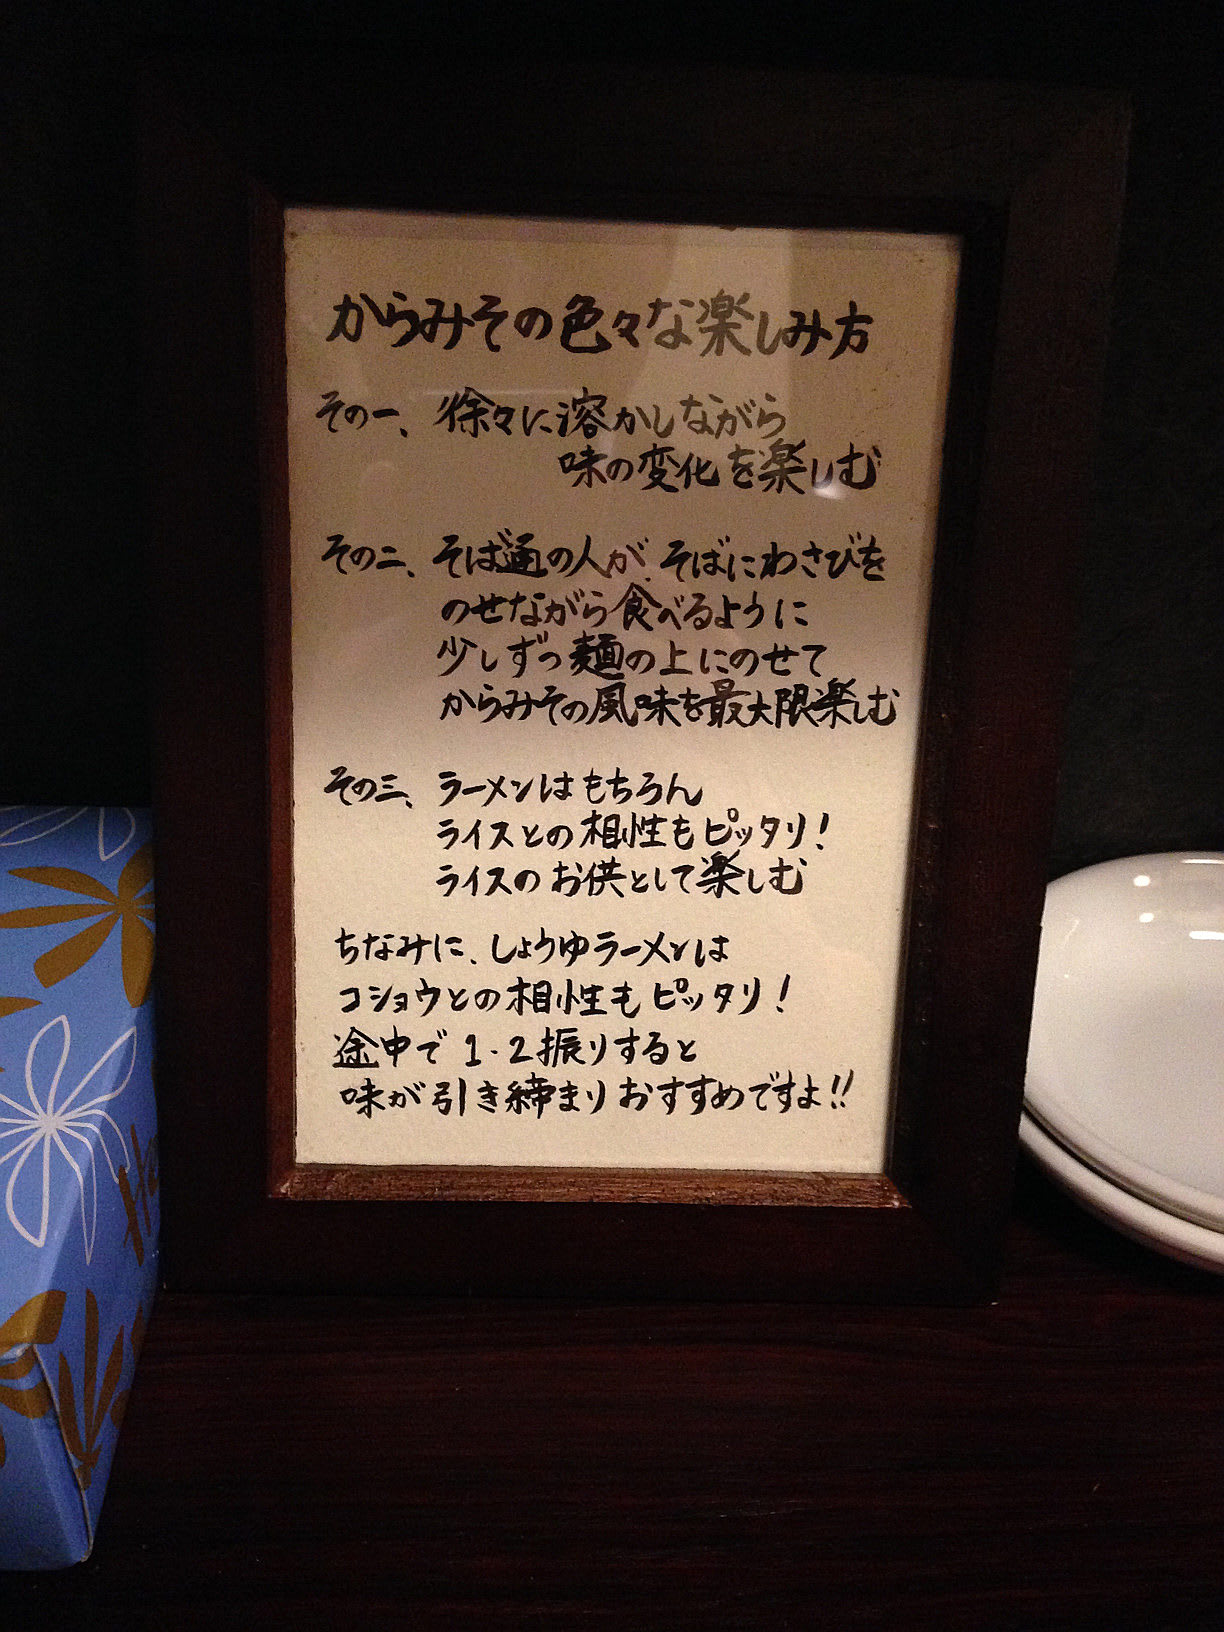 からみその色々な楽しみ方
その一、徐々に溶かしながら
味の変化を楽しむ
その二、そば通の人が、そばにわさびを
のせながら食べるように
少しずつ麺の上にのせて
からみその風味を最大限楽しむ
その三、ラーメンはもちろん
ライスとの相性もピッタリ!
ライスのお供として楽しむ
ちなみに、しょうゆラーメンは
コショウとの相性もピッタリ!
途中で1・2振りすると
味が引き締まりおすすめですよ!!